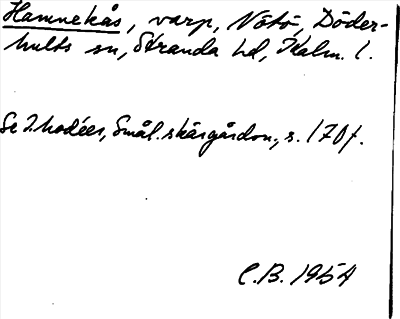 Hamnekås, varp, Nötö, Döder-
hults sn, Stranda hd, Kalm. l.
Se J. Modéer, Smål. skärgårdsn., s. 170 f.
C.B. 1954